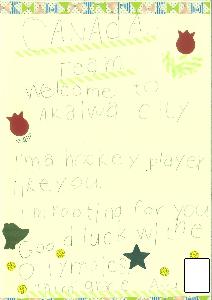 CANADA
TEAM
Welcome to
AKaiwa city
I'm a hockey player
like you.
I'm rooting for you
Good luck w the
Olympics